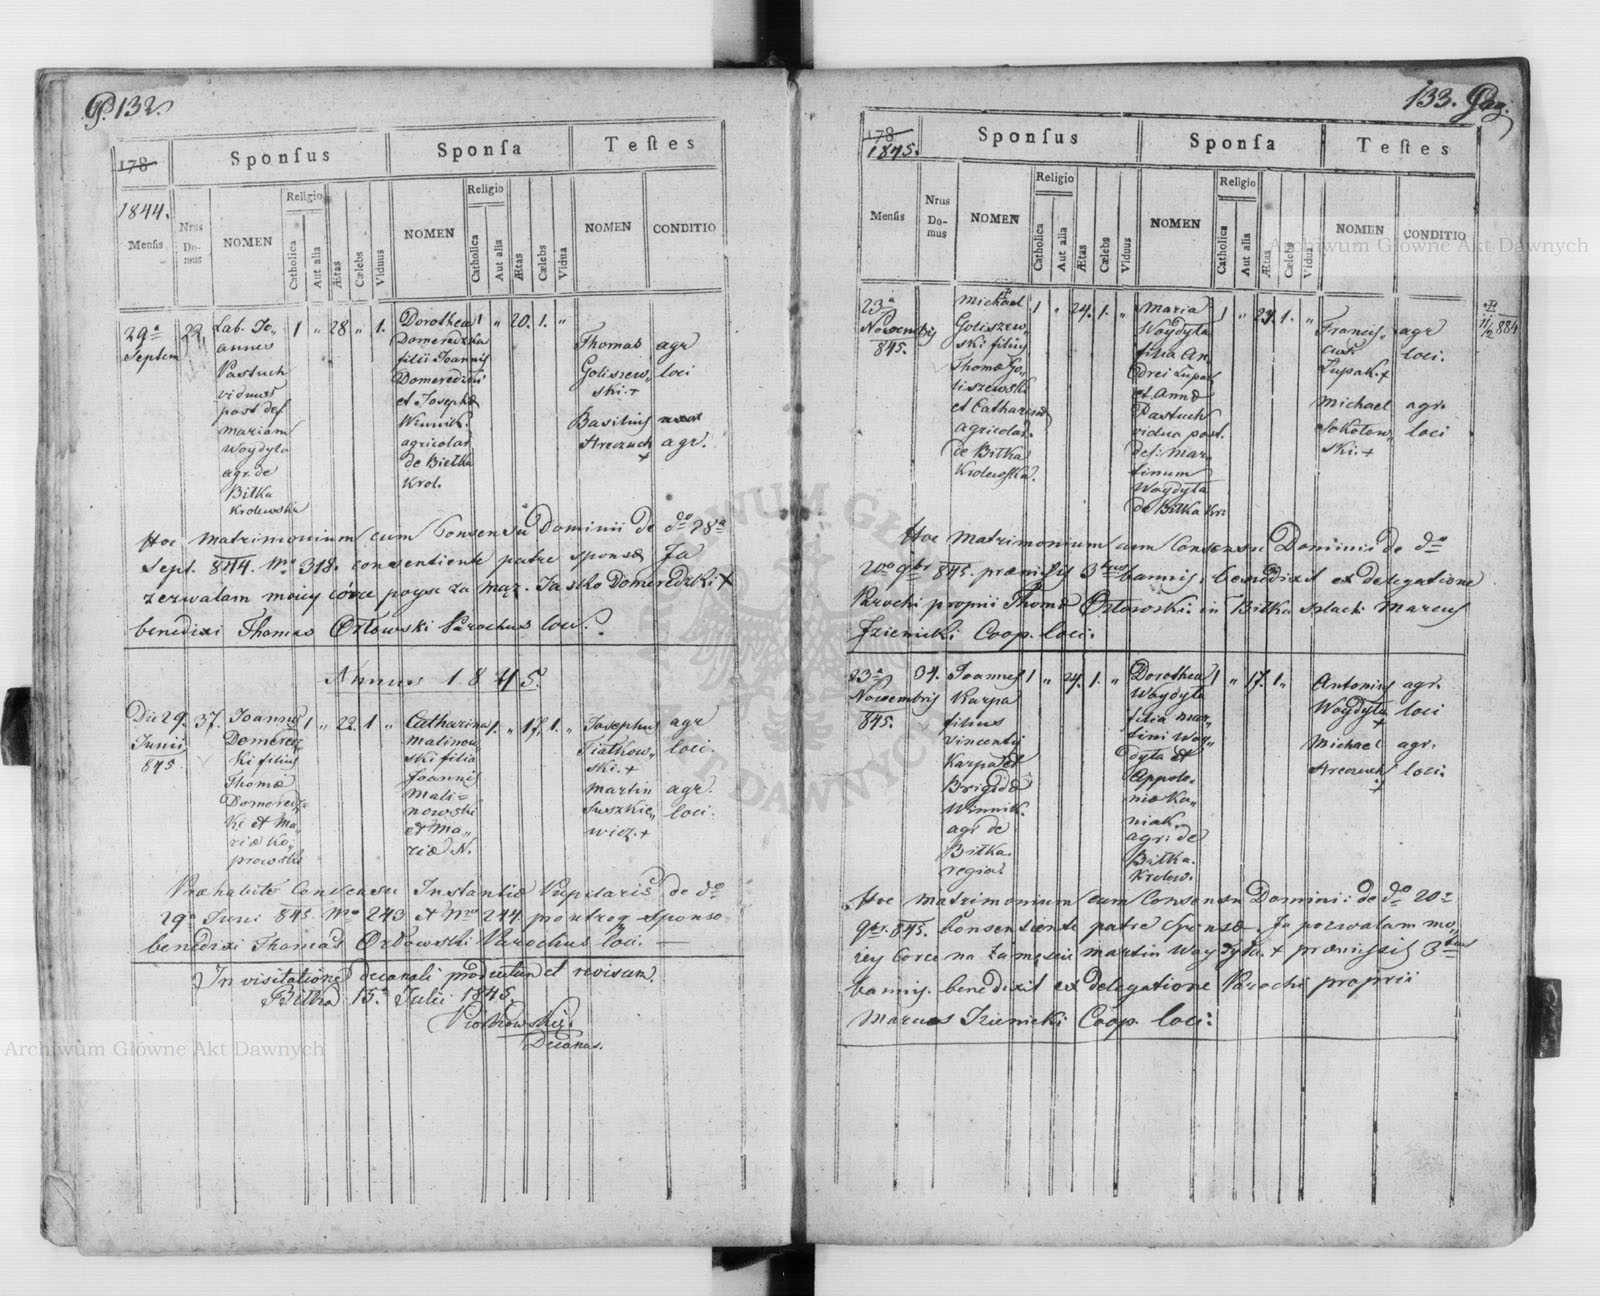 P. 132.
178
Sponſus
Sponſa
Teſtes
1844.
Menſis
Nrus Do- mus
NOMEN
Religio
Catholica
Aut alia
Ætas
Cælebs
Viduus
NOMEN
Religio
Catholica
Aut alia
Ætas
Cælebs
Vidua
NOMEN
CONDITIO
29a
Septem
22,
Lab. Jo„
annes
Pastuch
viduus
post def
Mariam
Woydyla
agr. de
Bilka
Krolewska
1 „ 28 „ 1.
Dorothea
Domeredzka
filii Joannis
Domeredzki
et Josephæ
Winnik.
agricolar
de Bielka
Krol.
1 „ 20. 1. „
Thomas
Goliszew„
ski. +
Basilius
Hreczuch
+
agr
loci
agr.
Hoc matrimonium cum Consensu Dominii de dto 28a
Sept. 844. No 318. consentiente patre sponsæ Ja
zezwalam moiey córce poyść za mąz. Jasko Domeredzki +
benedixi Thomas Orłowski Parochus loci.
Annus 1845.
Die 29.
Junii
845
37.
Joannes
Domered„
ki filius
Thomæ
Domereds=
ki et Ma„
riæ Ko„
prowski
1 „ 22. 1 „
Catharina
Malinow
ski filia
Joannis
Mali=
nowski
et Ma„
riæ N.
1. „ 17. 1. „
Josephus
Siatkow„
ski. +
Martin
Suszkie„
wicz. +
agr
loci.
agr.
loci.
Præhabito Consensu Instantiæ Pupilaris de dto
29a Junii 845 No 243 et Nro 244 pro utroq sponso
benedixi Thomas Orłowski Parochus loci. —
In visitatione decanali productum et revisum.
Bilka 15a Julii 1845.
Piotrowski
Decanus.
133. Pag.
178
1845.
Sponſus
Sponſa
Teſtes
Menſis
Nrus Do- mus
NOMEN
Religio
Catholica
Aut alia
Ætas
Cælebs
Viduus
NOMEN
Religio
Catholica
Aut alia
Ætas
Cælebs
Vidua
NOMEN
CONDITIO
23a
Novembris
845.
Michael
Goliszew„
ski filius
Thomæ Go„
liszewski
et Catharinæ
agricolar.
de Bilka
Krolewska.
1 „ 24. 1. „
Maria
Woydyla
filia An„
drei Łupak
et Annæ
Pastuch
vidua post.
def: Mar„
tinum
Woydyła
de Bilka Kr:
1 „ 24. 1. „
Francis„
cus
Łupak. +
Michael
Sokołow„
ski. +
agr
loci.
agr.
loci
11/2 884
Hoc matrimonium cum Consensu Dominii de dto
20a 9br 845. præmissis 3bus bannis. benedixit ex delegatione
Parochi proprii Thomæ Orłowski in Bilka szlach Marcus
Jzienicki Coop. loci:
23a
Novembris
845.
34.
Joannes
Karpa
filius
Vincentij
Karpa et
Brigidæ
Winnik.
agr de
Bilka
regia.
1 „ 24. 1. „
Dorothea
Woydyla
filia Mar„
tini Woy„
dyla et
Appolo„
niæ Ko„
niak.
agr: de
Bilka.
Krolew.
1 „ 17. 1 „
Antonius
Woydyła
+
Michael
Hreczuch
+
agr.
loci
agr.
loci.
Hoc matrimonium cum Consensu Dominii: de dto 20a
9br. 845. Consentiente patre sponsæ. Ja pozwalam mo„
iey Corce na zamęscie Martin Woydyla + præmissis 3bus
bannis. benedixit ex delegatione Parochi proprii
Marcus Jzienicki Coop. loci:
Archiwum Główne Akt Dawnych
Archiwum Główne Akt Dawnych